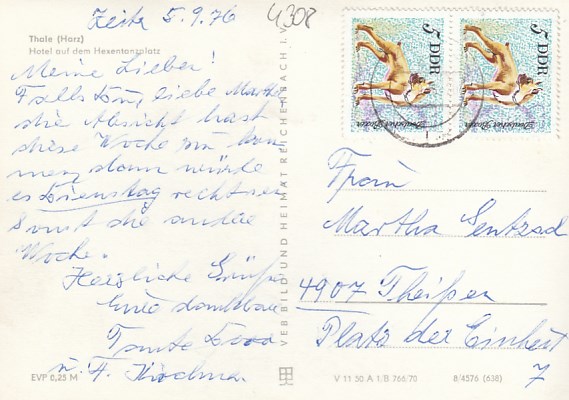 Zeitz 5.9.76
4308
Thale (Harz)
Hotel auf dem Hexentanzplatz
Meine Lieben!
Falls Du, liebe Martha
die Absicht hast
diese Woche zu kom
men, dann würde
es Dienstag recht sein
Sonst die andere
Woche.
Herzliche Grüße
Eure dankbare
Tante
u. F.
EVP 0,25 M
VEB BILD UND HEIMAT REICHENBACH I. V.
5 DDR
Deutscher Boxer
5 DDR
Deutscher Boxer
Frau
Martha Sentzad
4907 Theißen
Platz der Einheit
7
V 11 50 A 1/B 766/70
8/4576 (638)